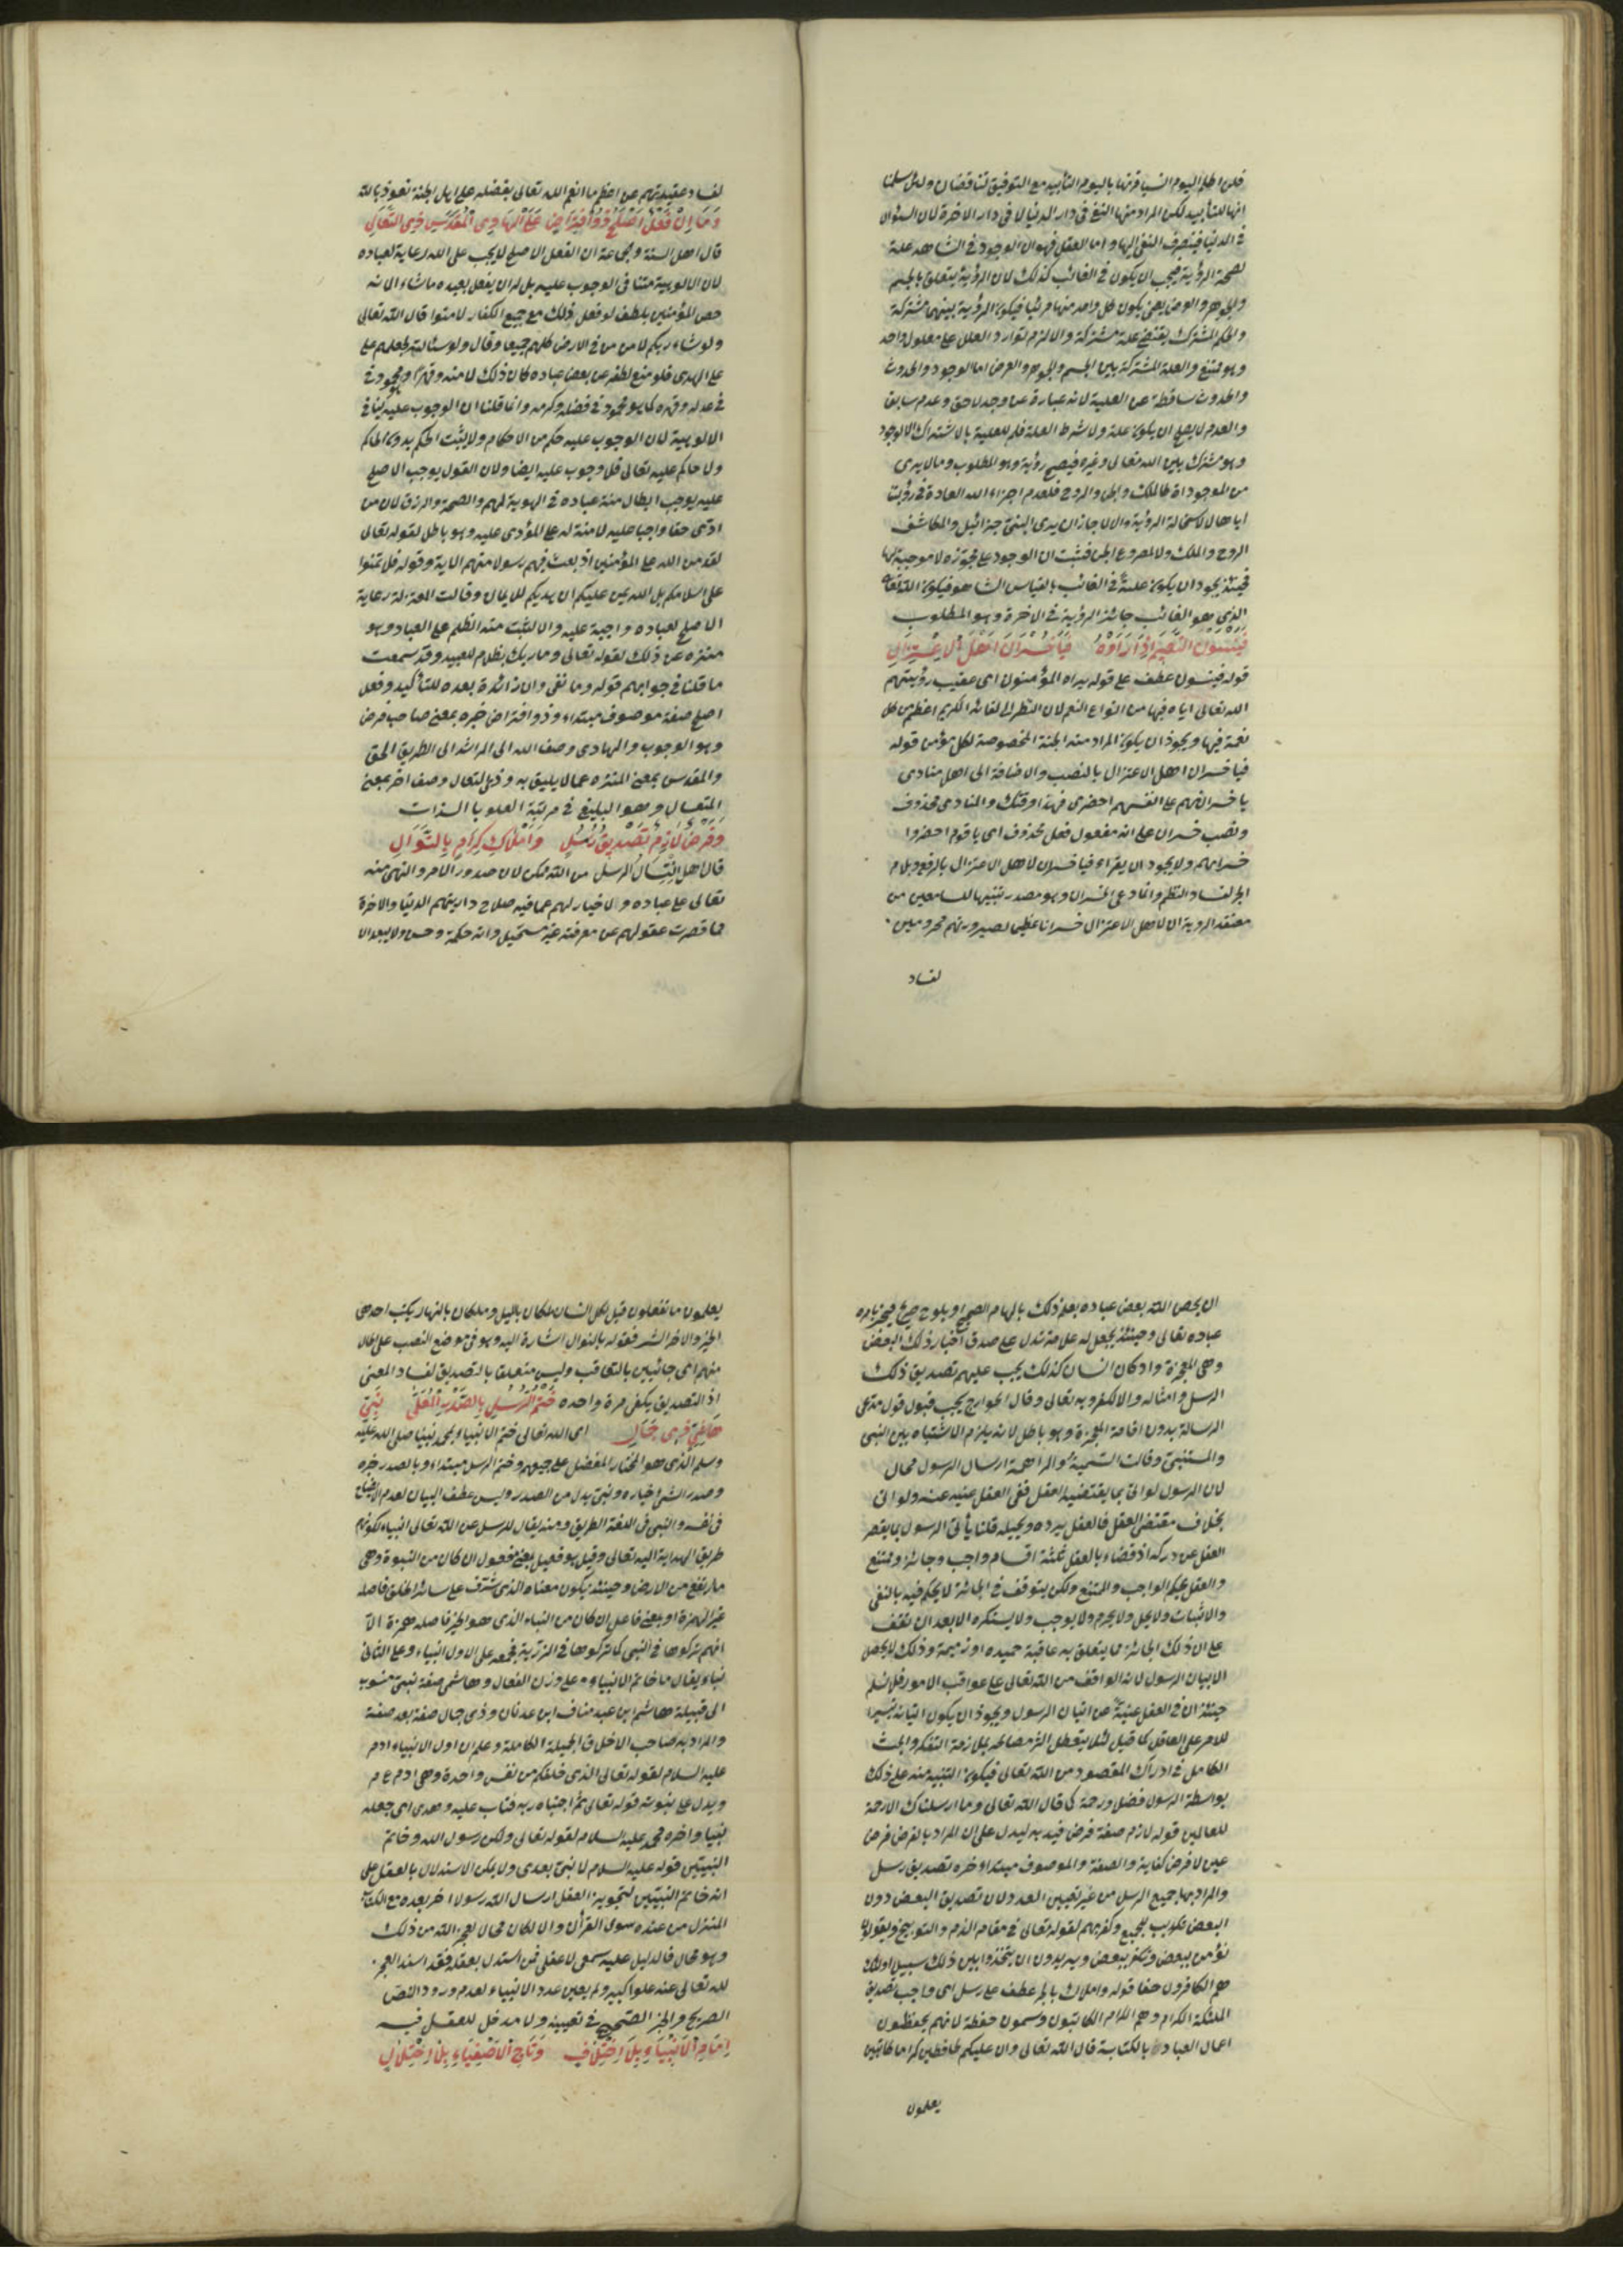 فلن اكلم اليوم انسيا قرنها باليوم التأبيد مع التوفيق لتناقضان ولئن سلمنا
انها للتأبيد لكن المراد منها النفي في دار الدنيا لا في دار الاخرة لان السؤال
في الدنيا فينصرف النفي اليها واما العقل فهو ان الوجود في الشاهد علة
لصحة الرؤية فيجب ان يكون في الغائب كذلك لان الرؤية يتعلق بالجسم
والجوهر والعرض يعني يكون كل واحد منها مرئيا فيكون الرؤية بينهما مشتركة
والحكم المشترك يقتضي علة مشتركة والا لزم توارد العلل على معلول واحد
وهو ممتنع والعلة المشتركة بين الجسم والجوهر والعرض اما الوجود والحدوث
والحدوث ساقطة عن العلية لانه عبارة عن وجد لاحق وعدم سابق
والعدم لا يصلح ان يكون علة ولا شرط العلة فلم للعلية بالاشتراك الا الوجود
وهو مشترك بين الله تعالى وغيره فيصح رؤيته وهو المطلوب وما لا يرى
من الموجوداة كالملك والجن والروح فلعدم اجراء الله العادة في رؤيت
اياها لا لاستحالة الرؤية والا لا جاز ان يرى النبي جبرائيل والمكاشف
الروح والملك والمصروع الجن فثبت ان الوجود علة مجوزه لا موجبة لها
فحينئذ يجود ان يكون علية في الغائب بالقياس الشاهد فيكون الله تعالى
الذي هو الغائب جائز الرؤية في الاخرة وهو المطلوب
فَيَنْسَوْنَ النَّعِيمَ اِذَا رَاَوْهُ فَيَا خُسْرَانَ اَهْلِ الْاِعْتِزَالِ
قوله فينسون عطف على قوله يراه المؤمنون اى عقيب رؤيتهم
الله تعالى اياه فيها من انواع النعم لان النظر الى لقائه الكريم اعظم من كل
نعمة فيها ويجوز ان يكون المراد منه الجنة المخصوصة لكل مؤمن قوله
فيا خسران اهل الاعتزال بالنصب والاضافة الى اهل منادى
يا خسرانهم على انفسهم احضرى فهذا وقتك والمنادى محذوف
ونصب خسران على انه مفعول فعل محذوف اى يا قوم احضروا
خسرانهم ولا يجود ان يقراء فيا خسران لاهل الاعتزال بالرفع وبلام
الجر لفساد النظم وانما دعى الخسران وهو مصدر تنبيها للسامعين من
معتقد الروية ان لاهل الاعتزال خسرانا عظيما لصيرورتهم محرومين
لفساد
لفساد عقيدتهم عن اعظم ما انعم الله تعالى بفضله على اهل الجنة نعوذ بالله
وَمَا اِنْ فِعْلُ اَصْلَحَ ذُو افْتِرَاضٍ عَلَى الْهَادِى الْمُقَدَّسِ ذِى التَّعَالِى
قال اهل السنة وجماعة ان الفعل الاصلح لا يجب على الله رعاية لعباده
لان الالوهية متنافى الوجوب عليه بل له ان يفعل بعبده ما شاء الا نه
خص المؤمنين بلطف لو فعل ذلك مع جميع الكفار لامنوا قال الله تعالى
ولو شاء ربكم لامن من في الارض كلهم جميعا وقال ولو شاء لله لجعلهم على
على الهدى فلو منع لطفه عن بعض عباده كان ذلك لا منه وقهرا ومحمود في
في عدله وقهره كما هو محمود في فضله وكرمه وانما قلنا ان الوجوب عليه ينافى
الالوهية لان الوجوب عليه حكم من الاحكام ولا يثبت الحكم بدون الحاكم
ولا حاكم عليه تعالى فلا وجوب عليه ايضا ولان القول بوجب الاصلح
عليه يوجب ابطال منة عباده في الهوية لهم والصحة والرزق لان من
ادى حقا واجبا عليه لا منة له على المؤدى عليه وهو باطل لقوله تعالى
لقد من الله على المؤمنين اذ بعث فيهم رسولا منهم الاية وقوله قل لا تمنوا
على اسلامكم بل الله يمن عليكم ان هديكم للايمان وقالت المعتزلة رعاية
الاصلح لعباده واجبة عليه والا لثبت منه الظلم على العباد وهو
منزه عن ذلك لقوله تعالى وما ربك بظلام للعبيد وقد سمعت
ما قلنا في جوابهم قوله وما نفى وان زائدة بعده للتأكيد وفعل
اصلح صفة موصوف مبتداء وذو افتراض خبره بمعنى صاحب فرض
وهو الوجوب والهادى وصف الله الى المراشد الى الطريق الحق
والمقدس بمعنى المنزه عما لا يليق به وذى لتعال وصف اخر بمعنى
المتعال وهو البليغ في مرتبة العلو بالذات
وَفَرْضٌ لَازِمٌ تَصْدِيقُ رُسْلٍ وَاَمْلَاكٍ كِرَامٍ بِالنَّوَالِ
قال اهل ارسال الرسل من الله ممكن لان صدور الامر والنهى منه
تعالى على عباده والاخيار لهم عما فيه صلاح داريتهم الدنيا والاخرة
مما قصرت عقولهم عن معرفته غير مستحيل وانه حكمة وحسن ولا يبعد الا
ان يخص الله بعض عباده بعلم ذلك بالهام الصحيح او بلوح صريح فيخبر بامره
عباده تعالى وحينئذ يجعل له علامة تدل على صدق اخبار ذلك البعض
وهى المعجزة واذ كان انسان كذلك يجب عليهم تصديق ذلك
الرسل وامثاله والا لكفروا به تعالى وقال الخوارج يجب قبول قول مدعى
الرسالة بدون اقامة المعجزة وهو باطل لانه يلزم الاشتباه بين النبى
والمستنبئ وقالت السمنية والبراهمة ارسال الرسول محال
لان الرسول لو اتى بما يقتضيه العقل ففى العقل غنيه عنه ولو اتى
بخلاف مقتضى العقل فالعقل يرده ويحيله قلنا يأتى الرسول بما يقصر
العقل عن دركه اذ قضاء بالعقل ثلثة اقسام واجب وجائز وممتنع
والعقل يحكم الواجب والممتنع ولكن يتوقف في الجائز لا يحكم فيه بالنفى
والاثبات ولا يحل ولا يحرم ولا يوجب ولا يستكره الا بعد ان تقف
على ان ذلك الجائز مما يتعلق به عاقبة حميده او ذميمة وذلك لا يحصل
الا ببيان الرسول لانه الواقف من الله تعالى على عواقب الامور فلا نسلم
حينئذ ان في العقل غنية عن اتيان الرسول ويجوز ان يكون اتيانه تيسيرا
للامر على العاقل كما قيل لئلا يتعطل اكثر مصالحه بملازمة التفكر والبحث
الكامل في ادراك المقصود من الله تعالى فيكون التنبيه منه على ذلك
بواسطة الرسول فضل ورحمة كما قال الله تعالى وما ارسلناك الا رحمة
للعالمين قوله لازم صفة فرض قيد به ليدل على ان المراد بالفرض فرض
عين لا فرض كفاية والصفة والموصوف مبتدا وخبره تصديق رسل
والمراد بها جميع الرسل من غير تعيين العدد ولان تصديق البعض دون
البعض تكذيب للجميع وكفر بهم لقوله تعالى في مقام الذم والتوبيخ ويقولون
نؤمن ببعض ونكفر ببعض ويريدون ان يتخذوا بين ذلك سبيلا اولئك
هم الكافرون حقا قوله واملاك بالجر عطف على رسل اى واجب تصديق
الملئكة الكرام وهم الكرام الكاتبون وسمون حفظة لانهم يحفظون
اعمال العباد بالكتابة قال الله تعالى وان عليكم لحافظين كراما كاتبين
يعلمون
يعلمون ما تفعلون قيل لكل انسان ملكان باليل وملكان بالنهار يكتب احدهى
الخير والاخر الشر فقوله بالنوال اشارة اليه وهو فى موضع النصب على الحال
منهم اى جائيين بالتعاقب وليس متعلقا بالتصديق لفساد المعنى
اذ التصديق يكفى مرة واحده خَتْمُ الرُّسْلِ بِالصَّدْرِ الْمُعَلَّى نَبِىٍّ
هَاشِمِىٍّ ذِى جَمَالِ اى الله تعالى ختم الانبياء بمحمد نبينا صلى الله عليه
وسلم الذى هو المختار المفضل على جميعهم وختم الرسل مبتداء وبالصدر خبره
وصدر الشئ اخياره ونبى بدل من الصدر وليس عطف البيان لعدم الايضاح
فى نفسه والنبى فى اللغة الطريق ومنه يقال للرسل عن الله تعالى انبياء لكونهم
طريق الهداية اليه تعالى وقيل هو فعيل بمعنى مفعول ان كان من النبوة وهى
ما رتفع من الارض وحينئذ يكون معناه الذى شرف على سائر الخلق فاصله
غير الهمزة او بمعنى فاعل ان كان من النباء الذى هو الخبر فاصله همزة الا
انهم تركوها في النبى كما تركوها في الذرية فجمعه على الاول انبياء وعلى الثانى
نباء يقال ما خاتم الانبياء على وزن الفعال وهاشمى صفة نبى منسوب
الى قبيلة هاشم ابن عبد مناف ابن عدنان وذى جمال صفة بعد صفة
والمراد به صاحب الاخلاق الجميلة الكاملة وعلم ان اول الانبياء ادم
عليه السلام لقوله تعالى الذى خلقكم من نفس واحدة وهى ادم ع م
ويدل على نبوته قوله تعالى ثم اجتباه ربه فتاب عليه وهدى اى جعله
نبيا واخره محمد عليه السلام لقوله تعالى ولكن رسول الله وخاتم
النبيين قوله عليه السلام لا نبى بعدى ولا يمكن الاستدلال بالعقل على
انه خاتم النبيين لتجويز العقل ارسال الله رسولا اخر بعده مع الكتاب
المنزل من عنده سوى القرأن والا لكان محال لعجز الله من ذلك
وهو محال فالدليل عليه سمعى لا عقلى فمن استدل بعقله فقد اسند العجز
لله تعالى عنه علوا كبيرا ولم يعين عدد الانبياء لعدم ورود النص
الصريح والخبر الصحيح في تعيينه ولا مدخل للعقل فيه
اِمَامُ الْاَنْبِيَاءِ بِلَا اخْتِلَافٍ وَتَاجُ الْاَصْفِيَاءِ بِلَا اخْتِلَالِ